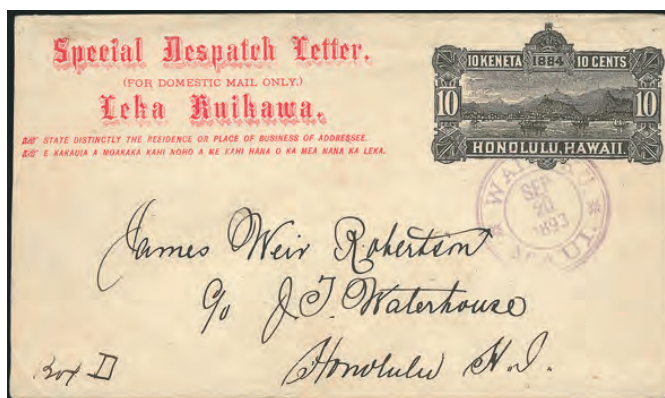 Special Despatch Letter.
(FOR DOMESTIC MAIL ONLY.)
Leka Kuikawa.
STATE DISTINCTLY THE RESIDENCE OR PLACE OF BUSINESS OF ADDRESSEE.
E KAKAUIA A MOAKAKA KAHI NOHO A ME KAHI HANA O KA MEA NANA KA LEKA.
10 KENETA 1884 10 CENTS
10 10
HONOLULU, HAWAII.
SEP
20
1893
MAUI.
James Weir Robertson
c/o J.T. Waterhouse
Honolulu H.I.
Box D